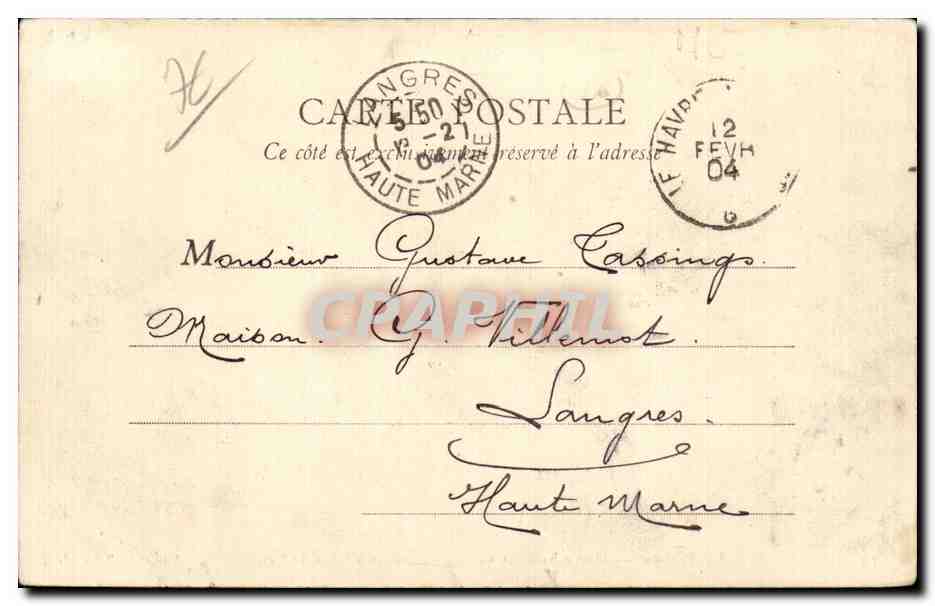 76
CARTE POSTALE
Ce côté est exclusivement réservé à l'adresse
LANGRES
5 50
21
04
HAUTE MARNE
LE HAVR
12
FEVR
04
6
Monsieur Gustave Tassings.
Maison. G. Villemot.
CPAPHIL
Langres.
Haute Marne